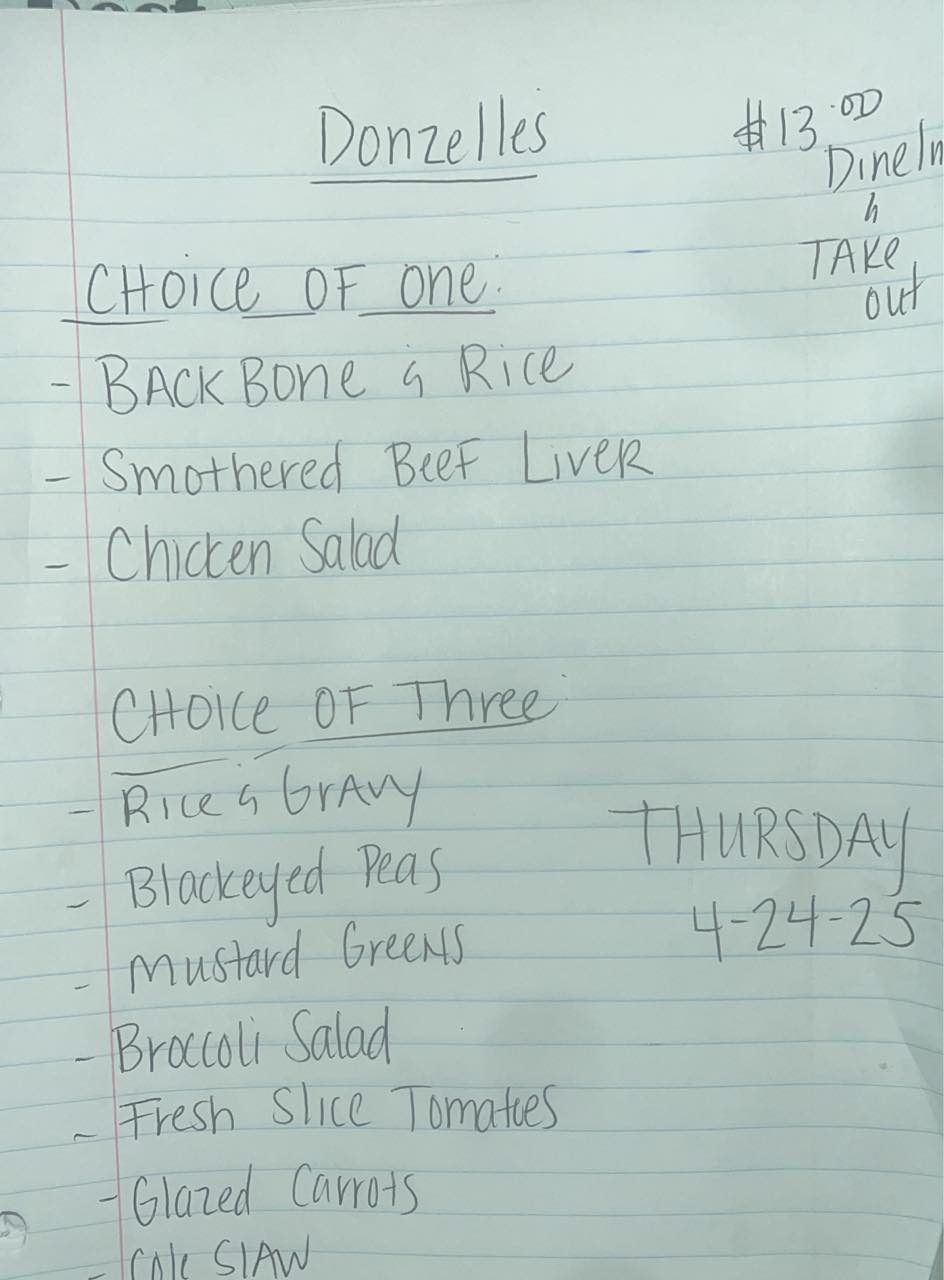 Donzelles
$13.00
Dine In
&
TAKE
out
CHOICE OF One:
- BACK BONE & RICE
- Smothered BEEF LIVER
- Chicken Salad
CHOICE OF Three
- RICE & GRAVY
- Blackeyed Peas
- Mustard GREENS
- Broccoli Salad
- Fresh Slice Tomatoes
- Glazed Carrots
- Cole SLAW
THURSDAY
4-24-25